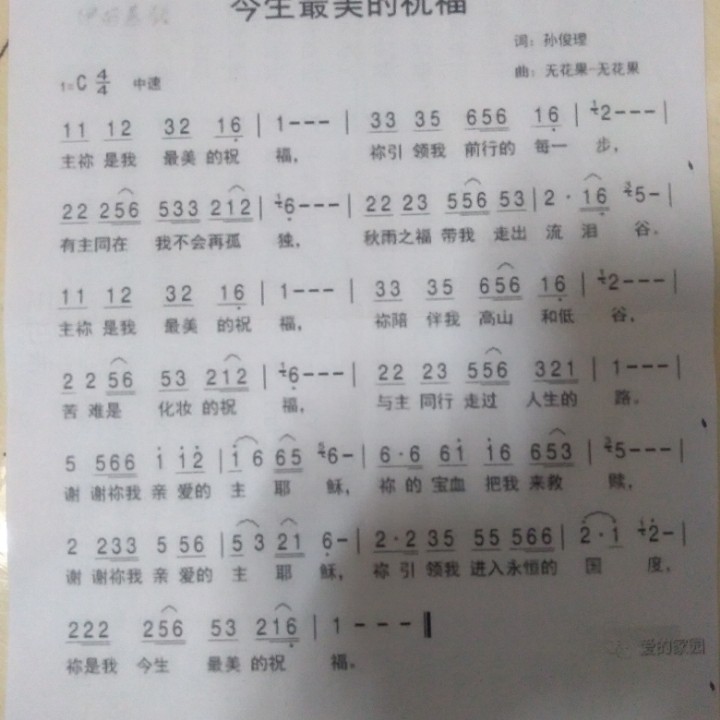 今生最美的祝福
词：孙俊理
曲：无花果-无花果
1=C 4/4 中速
11 12 32 16 | 1--- | 33 35 656 16 | 12--- |
主祢 是我 最美 的祝 福， 祢引 领我 前行的 每一 步，
22 256 533 212 | 16--- | 22 23 556 53 | 2· 16 35- |
有主同在 我不会再孤 独， 秋雨之福 带我 走出 流 泪 谷。
11 12 32 16 | 1--- | 33 35 656 16 | 12--- |
主祢 是我 最美 的祝 福， 祢陪 伴我 高山 和低 谷，
2 2 56 53 212 | 16--- | 22 23 556 321 | 1--- |
苦 难是 化妆 的祝 福， 与主 同行 走过 人生的 路。
5 566 i i2 | i 6 65 56- | 6·6 6i i6 653 | 35--- |
谢 谢祢我 亲 爱的 主 耶 稣， 祢 的 宝血 把我 来救 赎，
2 233 5 556 | 5 3 21 6- | 2·2 35 55 566 | 2·i 12- |
谢 谢祢我 亲 爱的 主 耶 稣， 祢 引 领我 进入永恒的 国 度，
222 256 53 216 | 1 - - - ‖
祢是我 今生 最美 的祝 福。
爱的家园